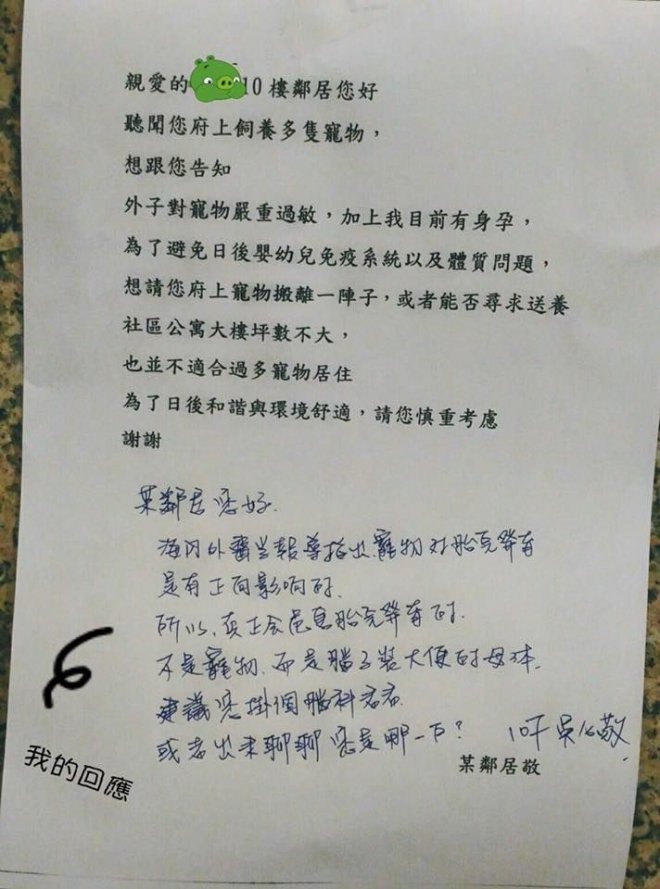 親愛的 10 樓鄰居您好
聽聞您府上飼養多隻寵物，
想跟您告知
外子對寵物嚴重過敏，加上我目前有身孕，
為了避免日後嬰幼兒免疫系統以及體質問題，
想請您府上寵物搬離一陣子，或者能否尋求送養
社區公寓大樓坪數不大，
也並不適合過多寵物居住
為了日後和諧與環境舒適，請您慎重考慮
謝謝
某鄰居您好.
海內外醫學報導指出寵物对胎兒發育
是有正向影响的.
所以,真正会危害胎兒發育的.
不是寵物.而是腦子裝大便的母体.
建議您掛個腦科看看
或者出来聊聊您是哪一下?
10F 吳 敬
某鄰居敬
我的回應